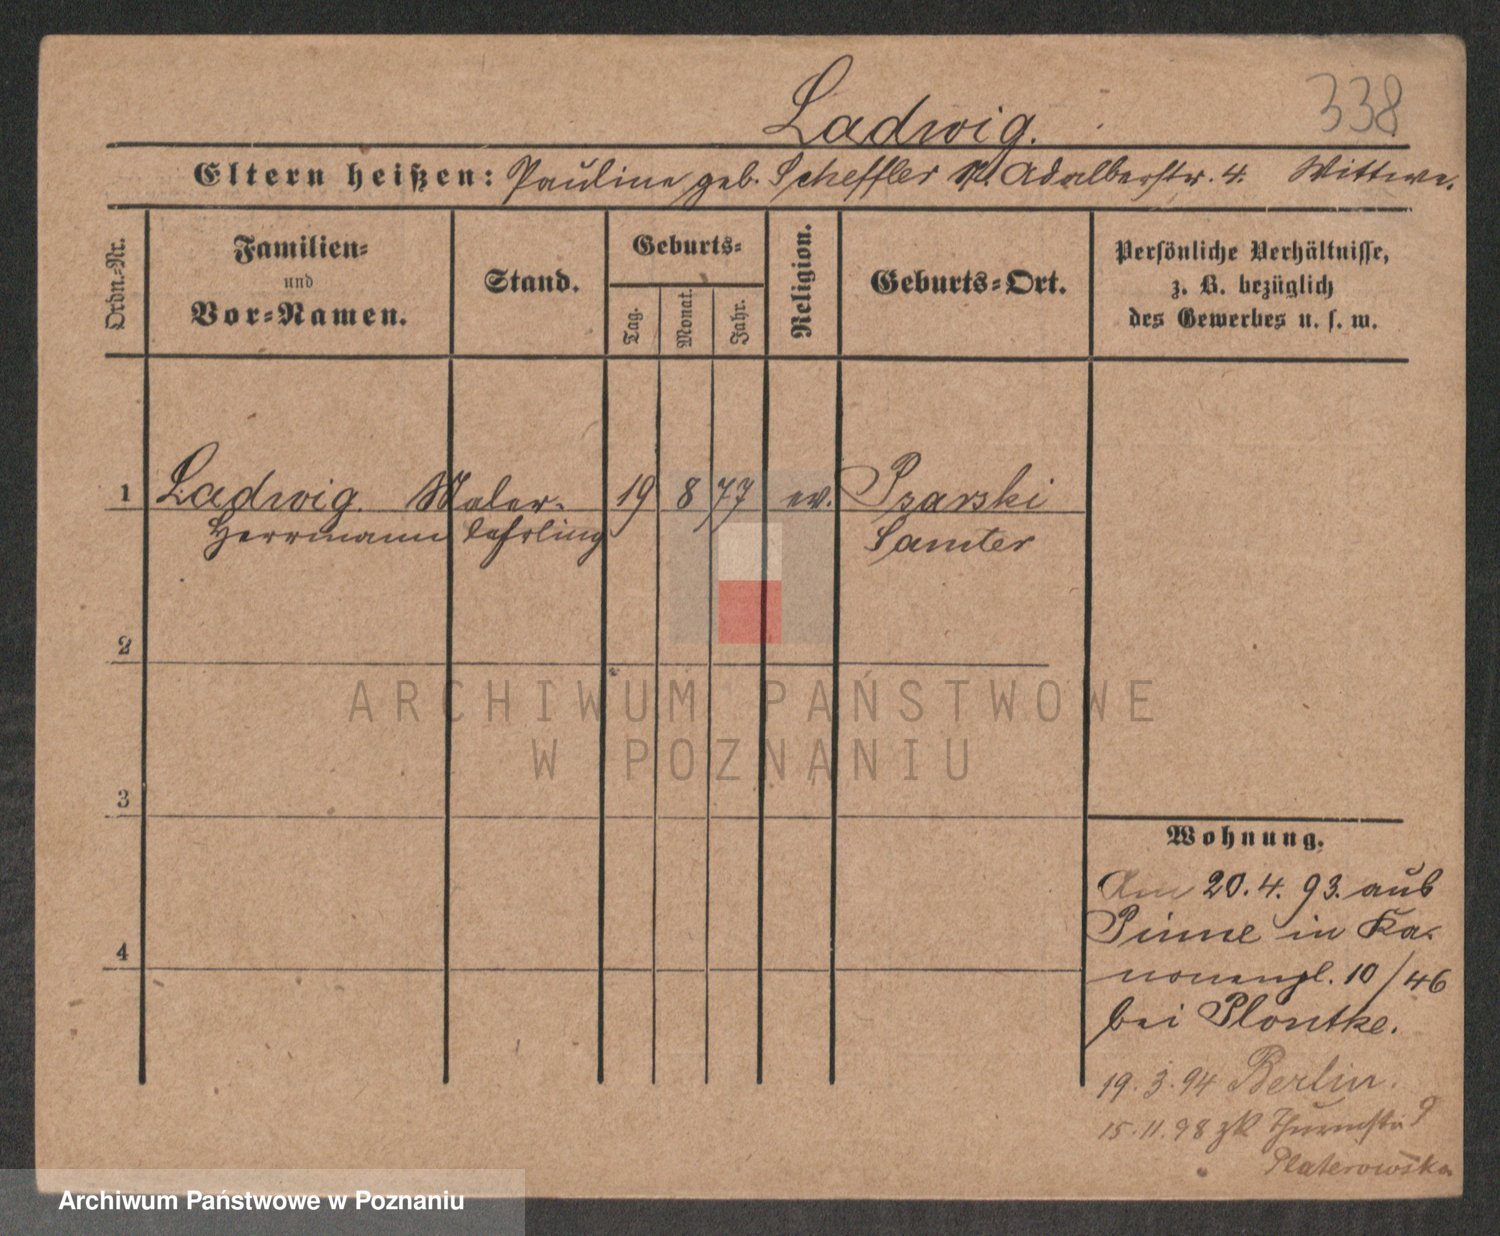 338
Ladwig.
Eltern heißen: Pauline geb. Scheffler Adalberstr. 4. Wittwe.
Ordn.-Nr.
Familien-
und
Vor-Namen.
Stand.
Geburts-
Tag.
Monat.
Jahr.
Religion.
Geburts-Ort.
Persönliche Verhältnisse,
z. B. bezüglich
des Gewerbes u. s. w.
1 Ladwig. Maler- 19 8 77 ev. Psarski
Herrmann lehrling Samter
2
3
4
Wohnung.
Am 20. 4. 93. aus
Pinne in Ka-
nonenpl. 10/46
bei Plontke.
19. 3. 94 Berlin.
15. 11. 98 zk Thurmstr
Platerowska
ARCHIWUM PAŃSTWOWE
W POZNANIU
Archiwum Państwowe w Poznaniu